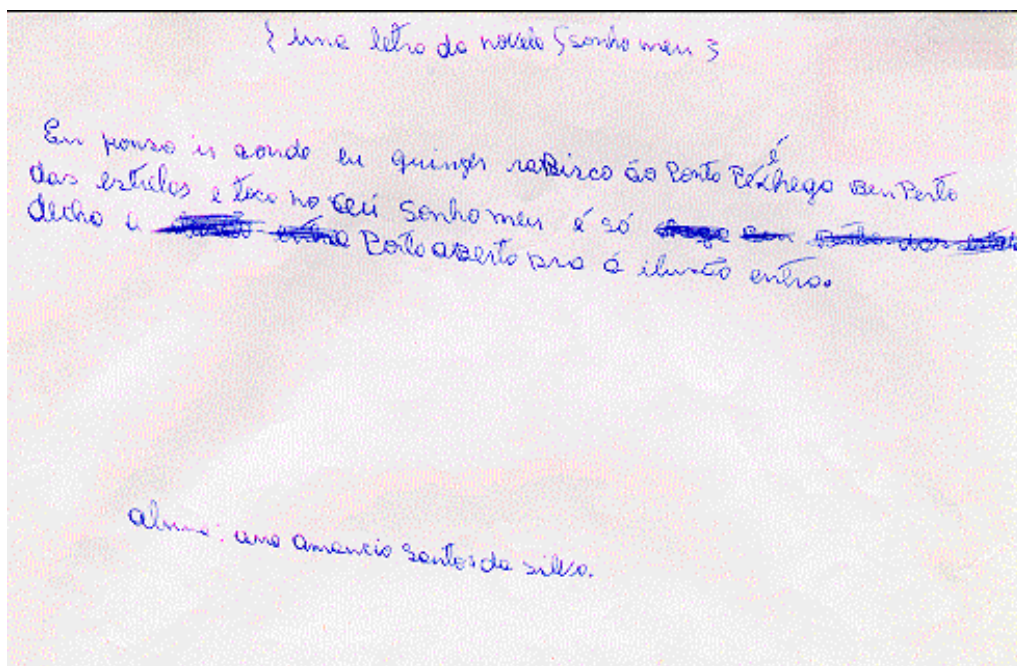 { uma letra da novela { sonho meu }
Eu posso ir aonde eu quinzer raBisco ão Ponto Pé é chego Ben Perto
das estrelas e toco no Ceú Sonho meu é só
decha a Porta aBerta pra á ilusão entra.
aluna: ana amancio Santos da silva.